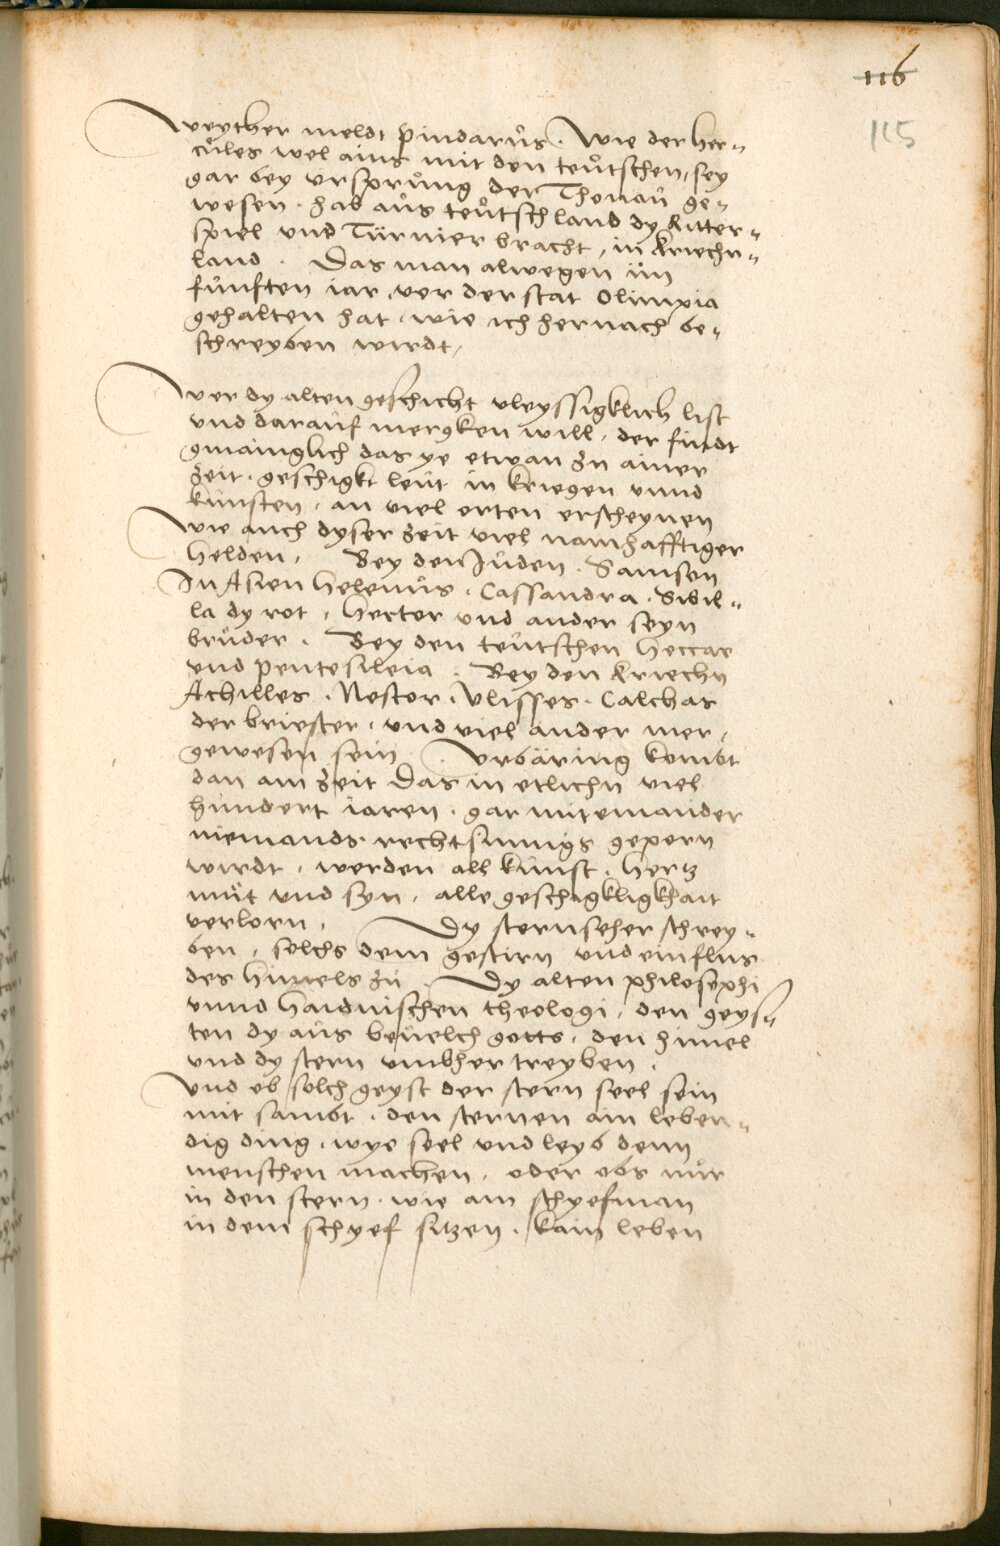 116
115
Weyther meldt Pindarůs. Wie der Her„
cůles wol ains mit den teůtschen, sey
gar bey ursprůng der Thonaů ge„
wesen. hab aůs teůtschland dy Ritter„
spiel und Türnier bracht, in kriechn„
land. Das man alwegen im
fůnften iar, vor der stat Olimpia
gehalten hat. wie ich hernach be„
schreyben wirdt,
Wer dy alten geschicht vleyssigklich list
und daraůf mergken will. der findt
gmainglich das ye etwan zu ainer
zeit. geschigkt leůt in kriegen unnd
kůnsten, an viel orten erscheynen
Wie auch dyser zeit viel namhafftiger
Helden. Bey den Jůden. Samson
In Asien Helenůs. Cassandra. Sibil„
la dy rot, Hector und ander seyn
brůder. Bey den teůtschen Heccar
und Pentesileia. Bey den Kriechn
Achilles. Nestor. Ulisses. Calchas
der briester. und viel ander mer,
gewesen sein. Urbäring kombt
dan ain zeit Das in etlichn viel
hůndert iaren. gar miteinander
niemands rechtsinnigs geporn
wirdt. werden all kůnst. Hertz
můt und syn. alle geschigkligkhait
verlorn. Dy sternseher schrey„
ben, solchs dem gestirn und einflus
des himels zů. Dy alten philosophi
unnd haidnischen theologi. den geys„
ten dy aůs bevelch gotts, den himel
und dy stern umbher treyben.
Und ob solch geyst der stern seel sein
mit sambt. den sternen ain leben„
dig ding. wye seel und leyb denn
menschen machen. oder obs nůr
in den stern. wie ain schyefman
in dem schyef sitzen. kain leben